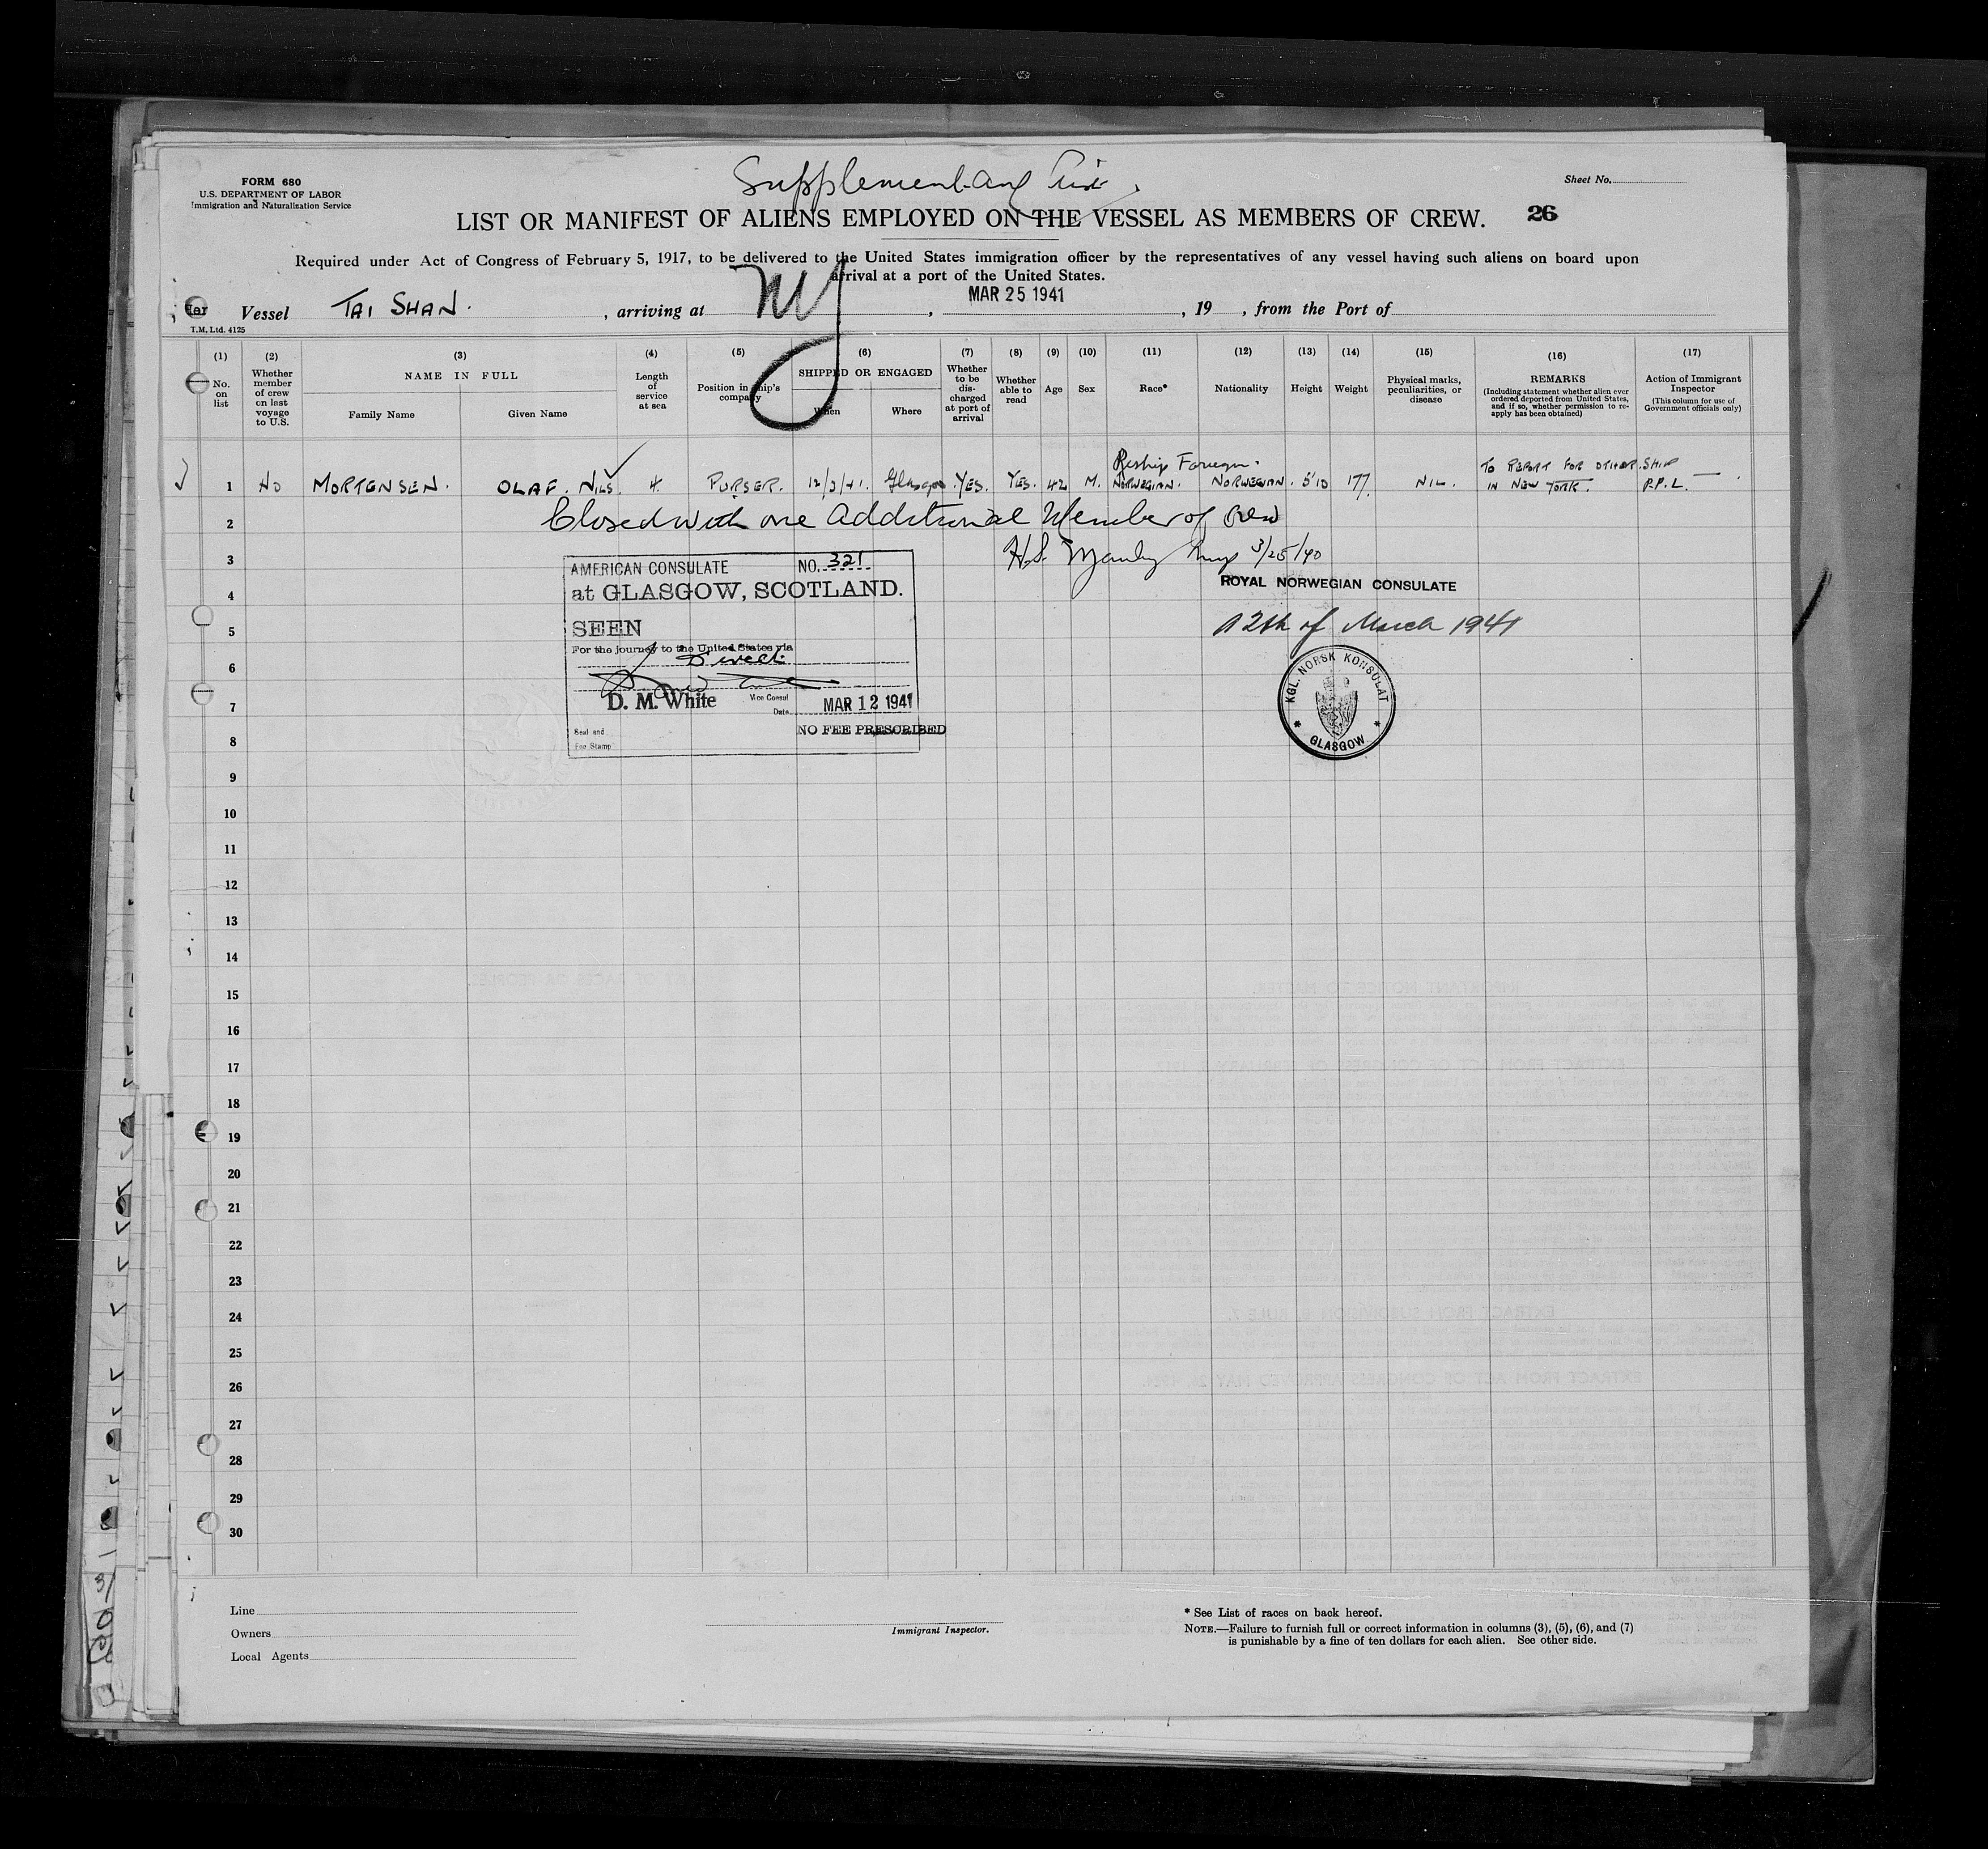 FORM 680
U.S. DEPARTMENT OF LABOR
Immigration and Naturalization Service
Supplementary List
Sheet No.
LIST OR MANIFEST OF ALIENS EMPLOYED ON THE VESSEL AS MEMBERS OF CREW. 26
Required under Act of Congress of February 5, 1917, to be delivered to the United States immigration officer by the representatives of any vessel having such aliens on board upon
arrival at a port of the United States.
Vessel TAI SHAN. , arriving at NY , MAR 25 1941 , 19 , from the Port of
T.M. Ltd. 4125
(1) No. on list
(2) Whether member of crew on last voyage to U.S.
(3) NAME IN FULL
Family Name
Given Name
(4) Length of service at sea
(5) Position in ship's company
(6) SHIPPED OR ENGAGED
When
Where
(7) Whether to be discharged at port of arrival
(8) Whether able to read
(9) Age
(10) Sex
(11) Race*
(12) Nationality
(13) Height
(14) Weight
(15) Physical marks, peculiarities, or disease
(16) REMARKS
(Including statement whether alien ever ordered deported from United States, and if so, whether permission to re-apply has been obtained)
(17) Action of Immigrant Inspector
(This column for use of Government officials only)
Reship Foreign.
1 NO MORTENSEN. OLAF. NILS. 4. PURSER. 12/3/41. Glasgow. YES. YES. 42 M. NORWEGIAN. NORWEGIAN. 5'10 177. NIL. TO REPORT FOR OTHER SHIP
IN NEW YORK. P.P.L. —
2 Closed with one Additional Member of Crew
3 H.S. Manly Insp 3/25/40
AMERICAN CONSULATE NO. 321
at GLASGOW, SCOTLAND.
SEEN
For the journey to the United States via
Direct
D. M. White Vice Consul
Date MAR 12 1941
Seal and
Fee Stamp
NO FEE PRESCRIBED
ROYAL NORWEGIAN CONSULATE
12th of March 1941
KGL. NORSK KONSULAT
* GLASGOW *
4
5
6
7
8
9
10
11
12
13
14
15
16
17
18
19
20
21
22
23
24
25
26
27
28
29
30
Line
Owners
Local Agents
Immigrant Inspector.
* See List of races on back hereof.
NOTE.—Failure to furnish full or correct information in columns (3), (5), (6), and (7)
is punishable by a fine of ten dollars for each alien. See other side.